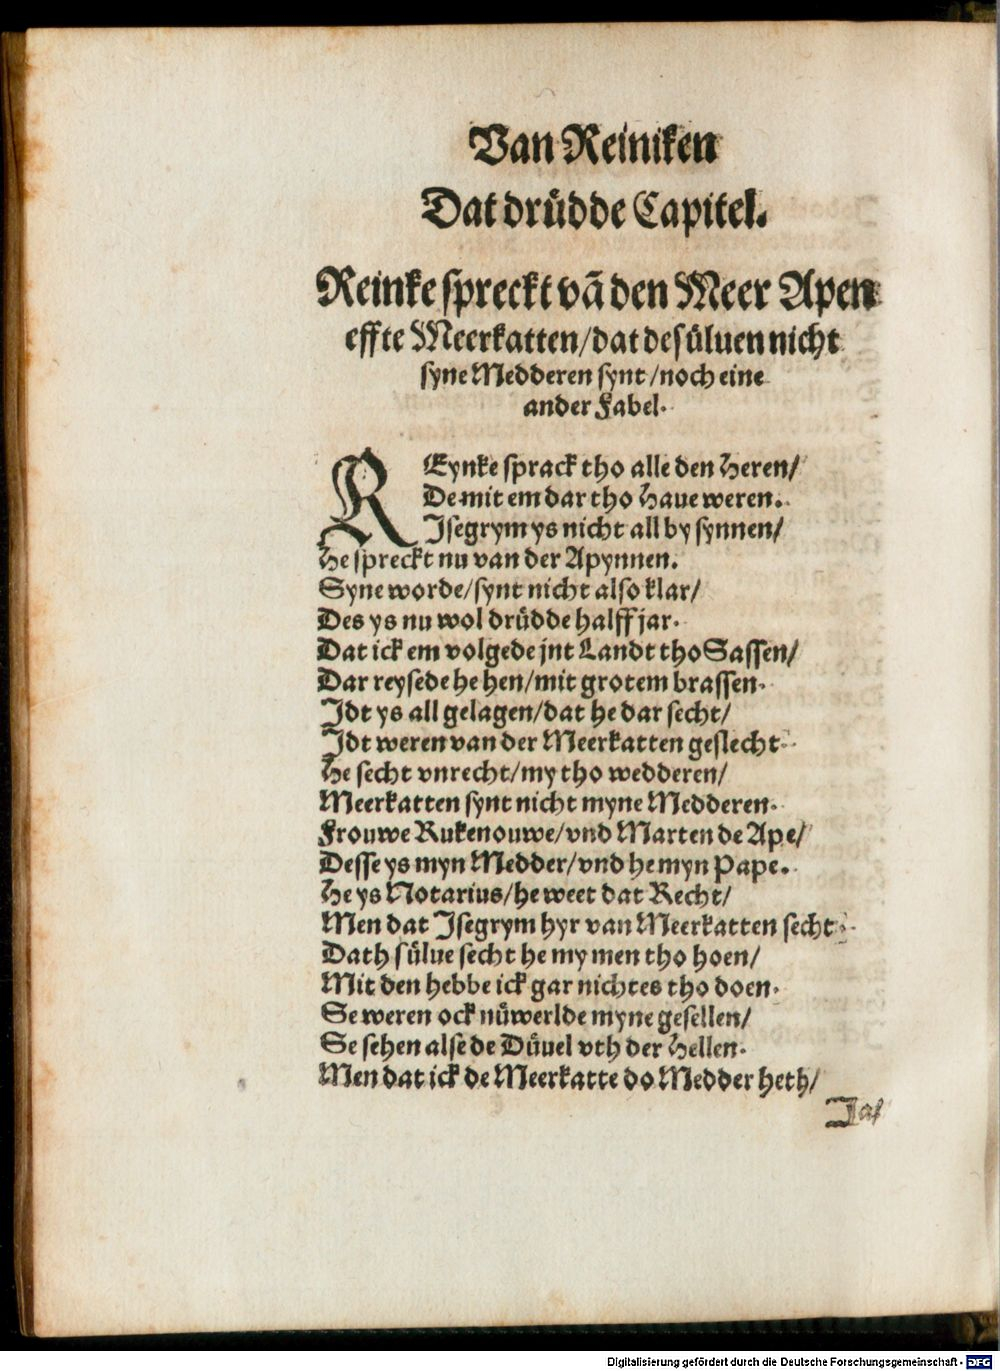 Van Reiniken
Dat drüdde Capitel.
Reinke spreckt vā den Meer Apen
effte Meerkatten/dat desüluen nicht
syne Medderen synt/noch eine
ander Fabel.
REynke sprack tho alle den Heren/
De mit em dar tho Haue weren.
Isegrym ys nicht all by synnen/
He spreckt nu van der Apynnen.
Syne worde/synt nicht also klar/
Des ys nu wol drüdde halff jar.
Dat ick em volgede jnt Landt tho Sassen/
Dar reysede he hen/mit grotem brassen.
Idt ys all gelagen/dat he dar secht/
Idt weren van der Meerkatten geslecht.
He secht vnrecht/my tho wedderen/
Meerkatten synt nicht myne Medderen.
Frouwe Rukenouwe/vnd Marten de Ape/
Desse ys myn Medder/vnd he myn Pape.
He ys Notarius/he weet dat Recht/
Men dat Isegrym hyr van Meerkatten secht.
Dath sülue secht he my men tho hoen/
Mit den hebbe ick gar nichtes tho doen.
Se weren ock nüwerlde myne gesellen/
Se sehen alse de Düuel vth der Hellen.
Men dat ick de Meerkatte do Medder heth/
Jat
Digitalisierung gefördert durch die Deutsche Forschungsgemeinschaft - DFG